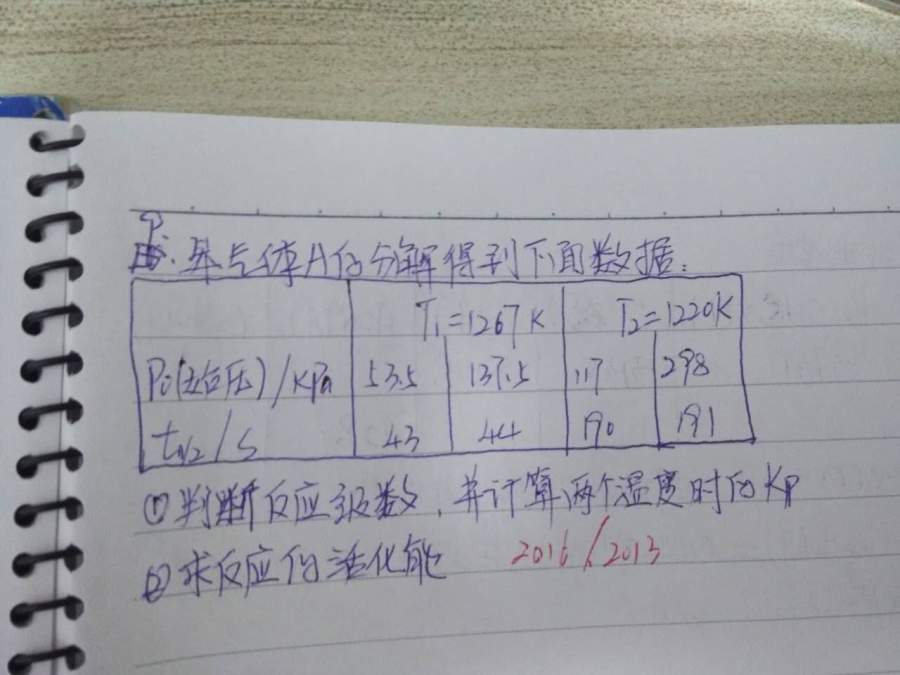 某气体A的分解得到下面数据:
T₁=1267K T₂=1220K
P₀(起始压)/KPa 53.5 137.5 117 298
t₁/₂/S 43 44 190 191
①判断反应级数,并计算两个温度时的Kp
②求反应的活化能 2016/2013